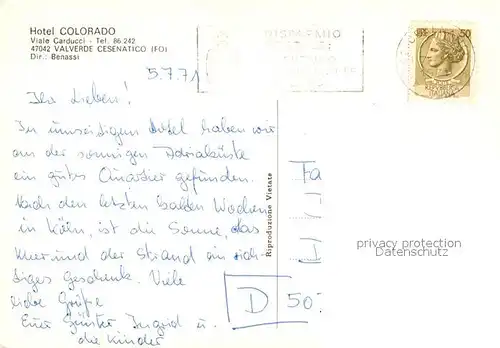 Hotel COLORADO
Viale Carducci - Tel. 86 242
47042 VALVERDE CESENATICO (FO)
Dir.: Benassi
RISPARMIO
50
5.7.71
Ihr Lieben!
In unserigem Hotel haben wir
an der sonnigen Adriaküste
ein gutes Quartier gefunden.
Nach den letzten kalten Wochen
in Köln, ist die Sonne, das
Meer und der Strand ein rich-
tiges Geschenk. Viele
liebe Grüße
Eure Günter Ingrid u.
die Kinder
Riproduzione Vietate
Fa
D 50
privacy protection
Datenschutz